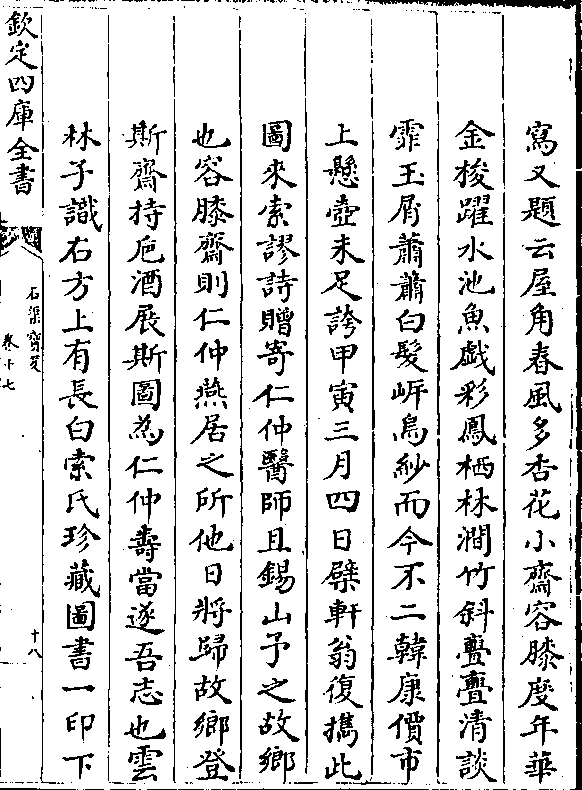 寫又題云屋角春風多杏花小齋容膝度年華
金梭躍水池魚戲彩鳳栖林澗竹斜亹亹清談
霏玉屑蕭蕭白髮岸烏紗而今不二韓康價市
上懸壺未足誇甲寅三月四日檗軒翁復攜此
圖來索謬詩贈寄仁仲醫師且錫山予之故鄉
也容膝齋則仁仲燕居之所他日將歸故鄉登
斯齋持巵酒展斯圖為仁仲壽當遂吾志也雲
林子識右方上有長白索氏珍藏圖書一印下
欽定四庫全書
石渠寶笈
卷十七
十八